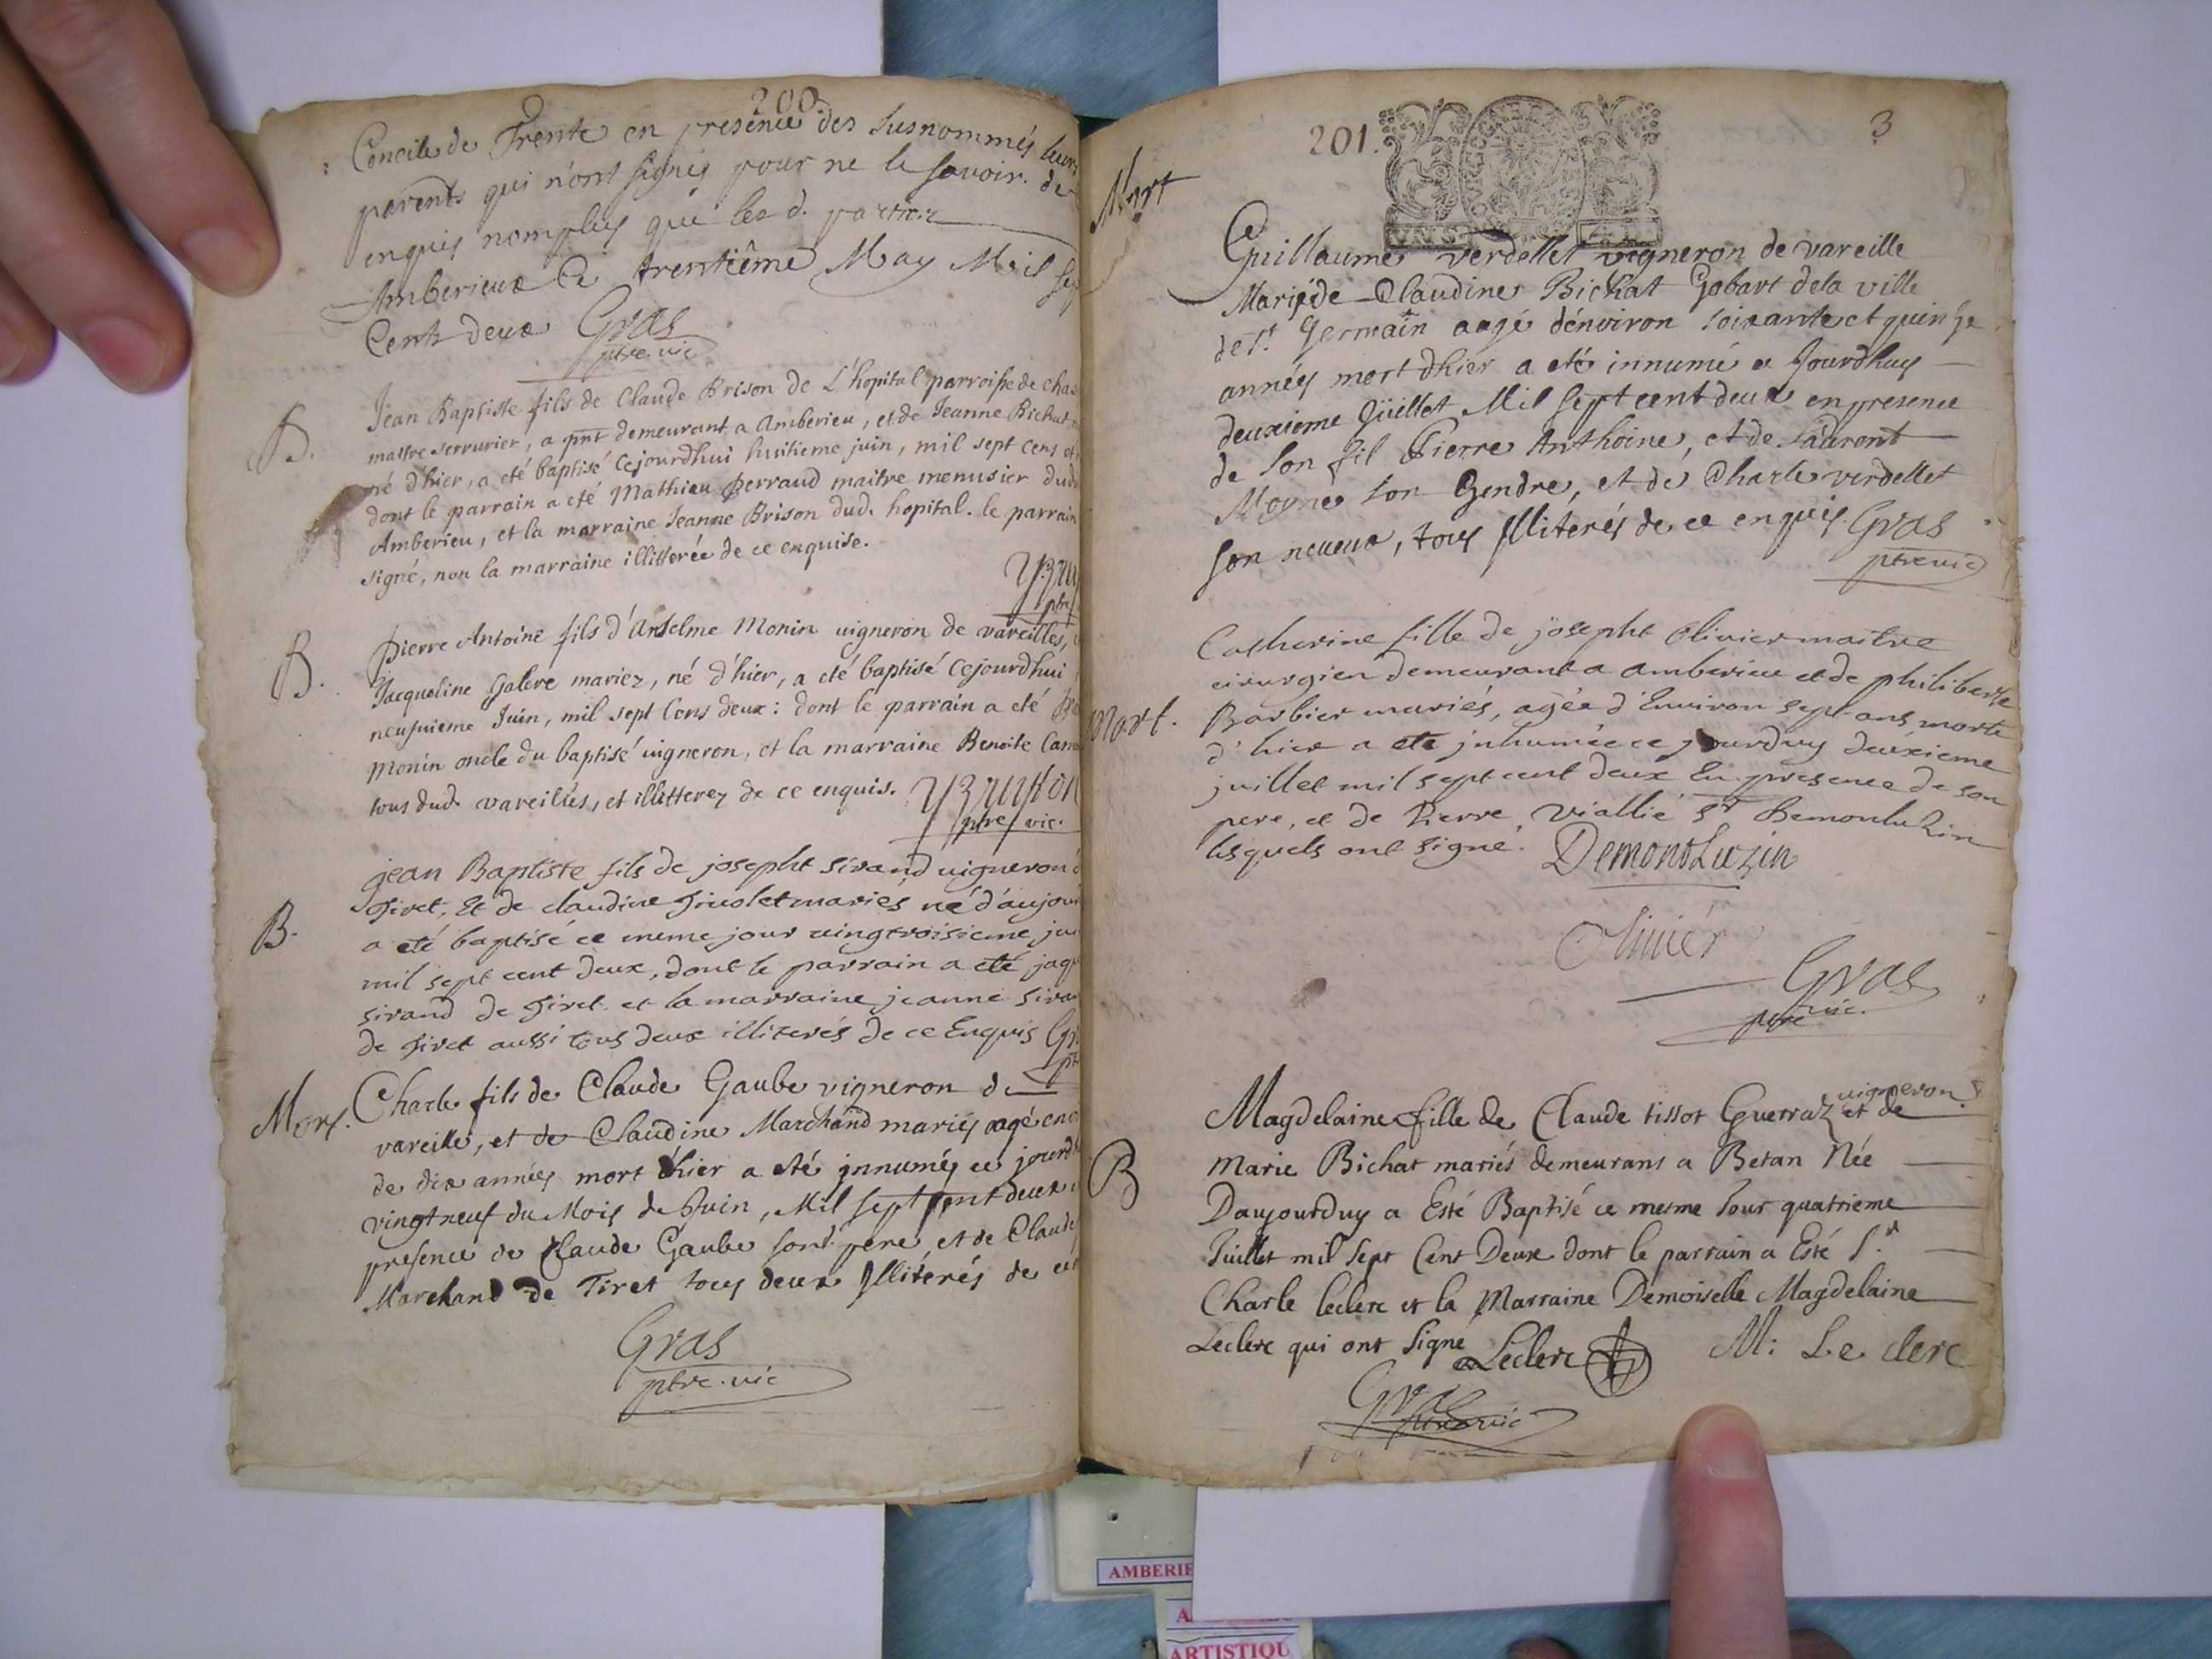 200
Concile de Trente en presence des susnommés leurs
parents qui n'ont signés pour ne le savoir. de
enquis nomplus que les d. parties
Amberieux ce trentième May Mil sep
Cents deux Gras
ptre vic
B. Jean Baptiste fils de Claude Brison de L'hopital parroisse de chas
maitre serrurier, a pnt demeurant a Amberieu, et de Jeanne Bichat
né d'hier, a eté baptisé Cejourdhui huitieme juin, mil sept cens et
dont le parrain a eté Mathieu perraud maitre menusier dud
Amberieu, et la marraine Jeanne Brison dud. hopital. le parrain
signé, non la marraine illitterée de ce enquise.
ptre
B. pierre Antoine fils d'Anselme Monin uigneron de vareilles,
Jacqueline Galere mariez, né d'hier, a eté baptisé Cejourdhui
neufuieme Juin, mil sept Cens deux: dont le parrain a eté
Monin oncle du baptisé uigneron, et la marraine Benoite Cam
tous dud. vareilles, et illitterez de ce enquis.
ptre vic.
B. jean Baptiste fils de josepht sirand uigneron d
Tiret, Et de claudine mariés né d'aujour
a eté baptisé ce meme jour uingtroisieme jui
mil sept cent deux, dont le parrain a eté jaqu
sirand de Tiret et la marraine jeanne siran
de Tiret aussi tous deux illiterés de ce Enquis Gr
ptr
Mort. Charle fils de Claude Gaube vigneron de
vareille, et de Claudine Marchand mariés aagé en
de dix années mort dhier a eté innumés ce jourdh
vingt neuf du Mois de Juin, Mil sept cent deux
presence de Claude Gaube sond. pere et de Claude
Marchand de Tiret tous deux Illiterés de ce
Gras
ptre vic
201. 3
Mort
Guillaume verdellet vigneron de vareille
Marié de Claudine Bichat Gobart de la ville
de St. Germain aagé d'environ soixante et quinze
années mort dhier a eté innumé a Jourdhuy
deuxieme Jüillet Mil sept cent deux en presence
de son fil Pierre Anthoine, et de Laurent
Moyne son Gendre, et de Charle verdellet
son neueux, tous Illiterés de ce enquis. Gras
ptre vic
Catherine fille de josepht Olivier maitre
cirurgien demeurant a amberieu et de philiberte
mort. Barbier mariés, agée d'Environ sept ans morte
d'hier a eté jnhumée ce jourduy deuxieme
juillet mil sept cent deux En presence de son
pere, et de Pierre Viallié sr Demonluzin
lesquels ont signé. DemonLuzin
Olivier
Gras
ptre vic.
vigneron
Magdelaine fille de Claude tissot Guerraz et de
B Marie Bichat mariés demeurans a Betan Née
Daujourduy a Esté Baptisé ce mesme Jour quatrieme
Juillet mil sept Cent Deux dont le parrain a Esté Sr.
Charle leclerc et la Marraine Demoiselle Magdelaine
Leclerc qui ont signé Leclerc M: Le clerc
Gras
ptre vic
AMBERIE
A
ARTISTIQU